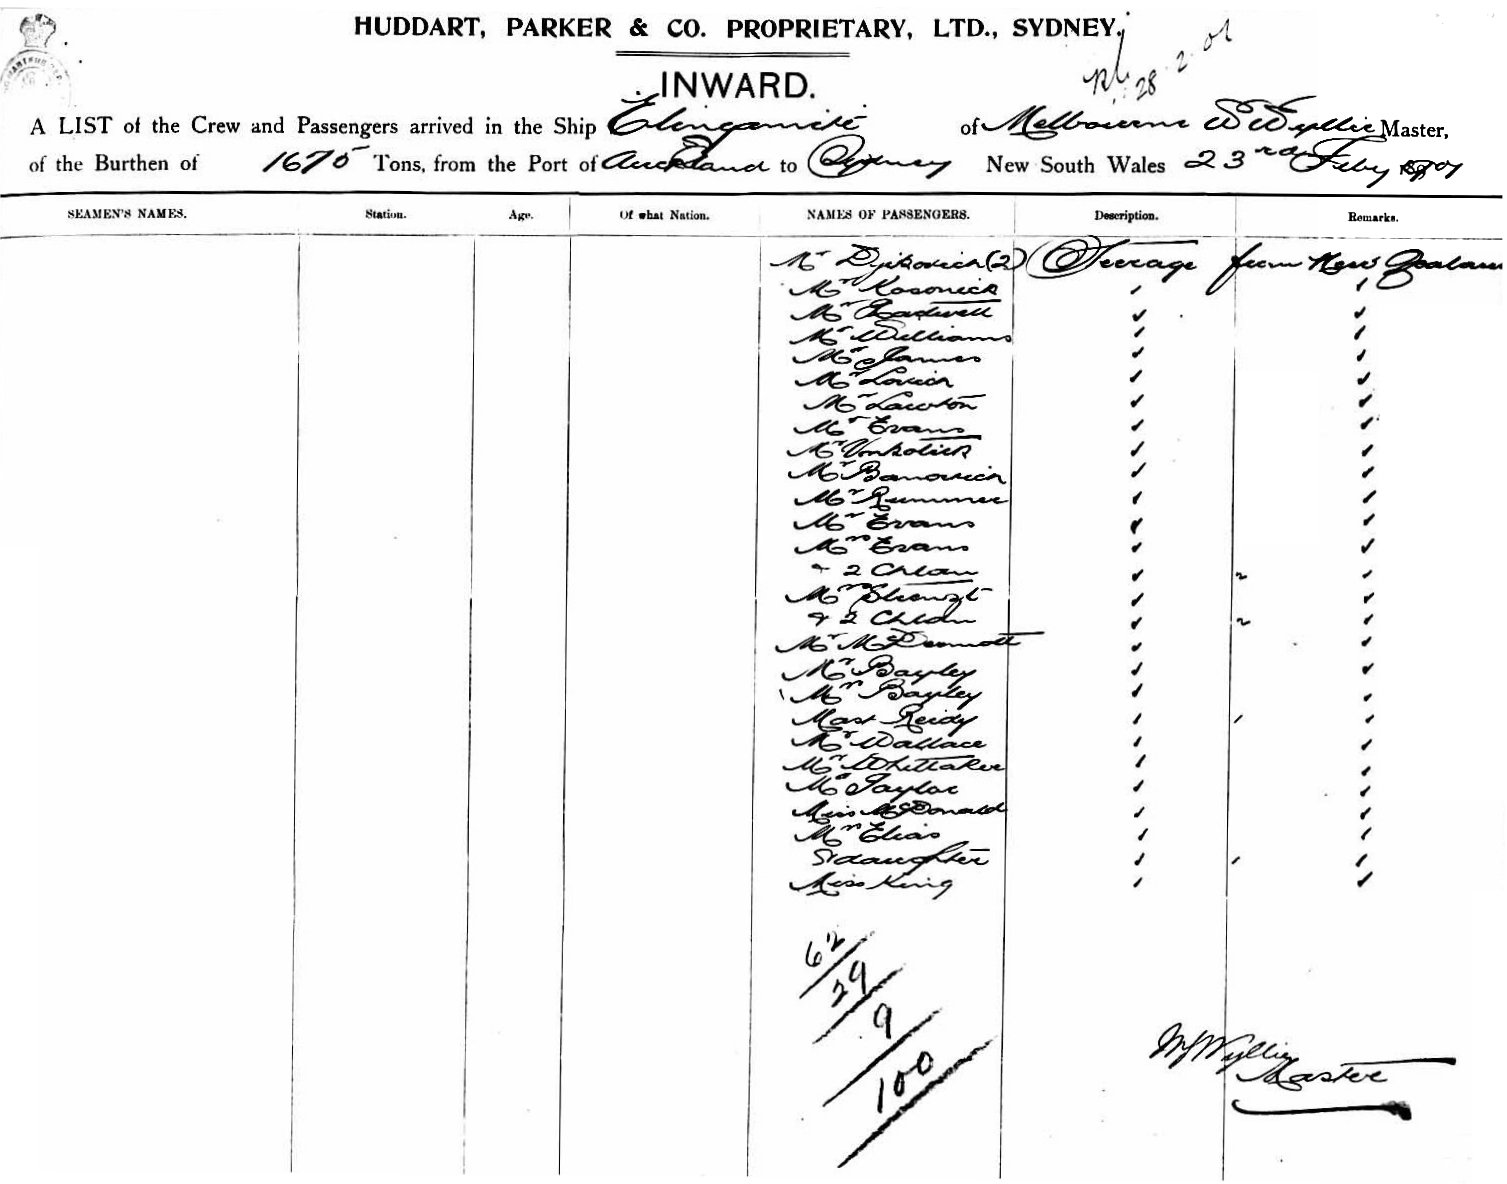 HUDDART, PARKER & CO. PROPRIETARY, LTD., SYDNEY.
28.2.01
INWARD.
A LIST of the Crew and Passengers arrived in the Ship Elingamite of Melbourne W Wyllie Master,
of the Burthen of 1675 Tons, from the Port of Auckland to Sydney New South Wales 23rd Feby 1901
SEAMEN'S NAMES. Station. Age. Of what Nation. NAMES OF PASSENGERS. Description. Remarks.
Mr (2) Steerage from New Zealand
Mr Kosovich
Mr
Mr Williams
Mr James
Mr Lovich
Mr Lawton
Mr Evans
Mr
Mr Banovich
Mr Rummer
Mr Evans
Mrs Evans
+ 2 Chldn
Mrs
& 2 Chldn
Mr McDermott
Mr Bayley
Mrs Bayley
Mast Reidy
Mr Wallace
Mr Whittaker
Mr Taylor
Miss McDonald
Mrs Elias
& daughter
Miss King
62
29
9
100
W Wyllie
Master